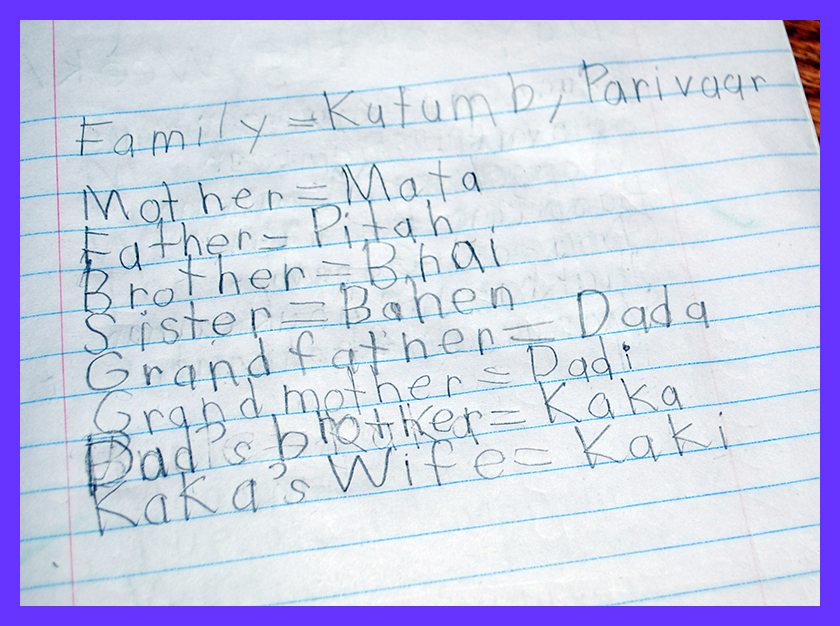 Family = Kutumb, Parivaar
Mother = Mata
Father = Pitah
Brother = Bhai
Sister = Bahen
Grandfather = Dada
Grandmother = Dadi
Dad's brother = Kaka
Kaka's Wife = Kaki